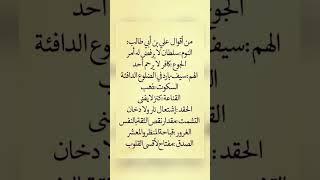 من أقوال علي بن أبي طالب:
النوم: سلطان لا يرفض له أمر
الجوع: كافر لا يرحم أحد
الهم: سيف بارد في الضلوع الدافئة
السكوت: ذهب
القناعة: كنز لا يفنى
الحقد: إشتعال نار ولا دخان
التشمت: مقدار نقص الثقة بالنفس
الغرور: قباحة المنظر والمعشر
الصدق: مفتاح لأقسى القلوب